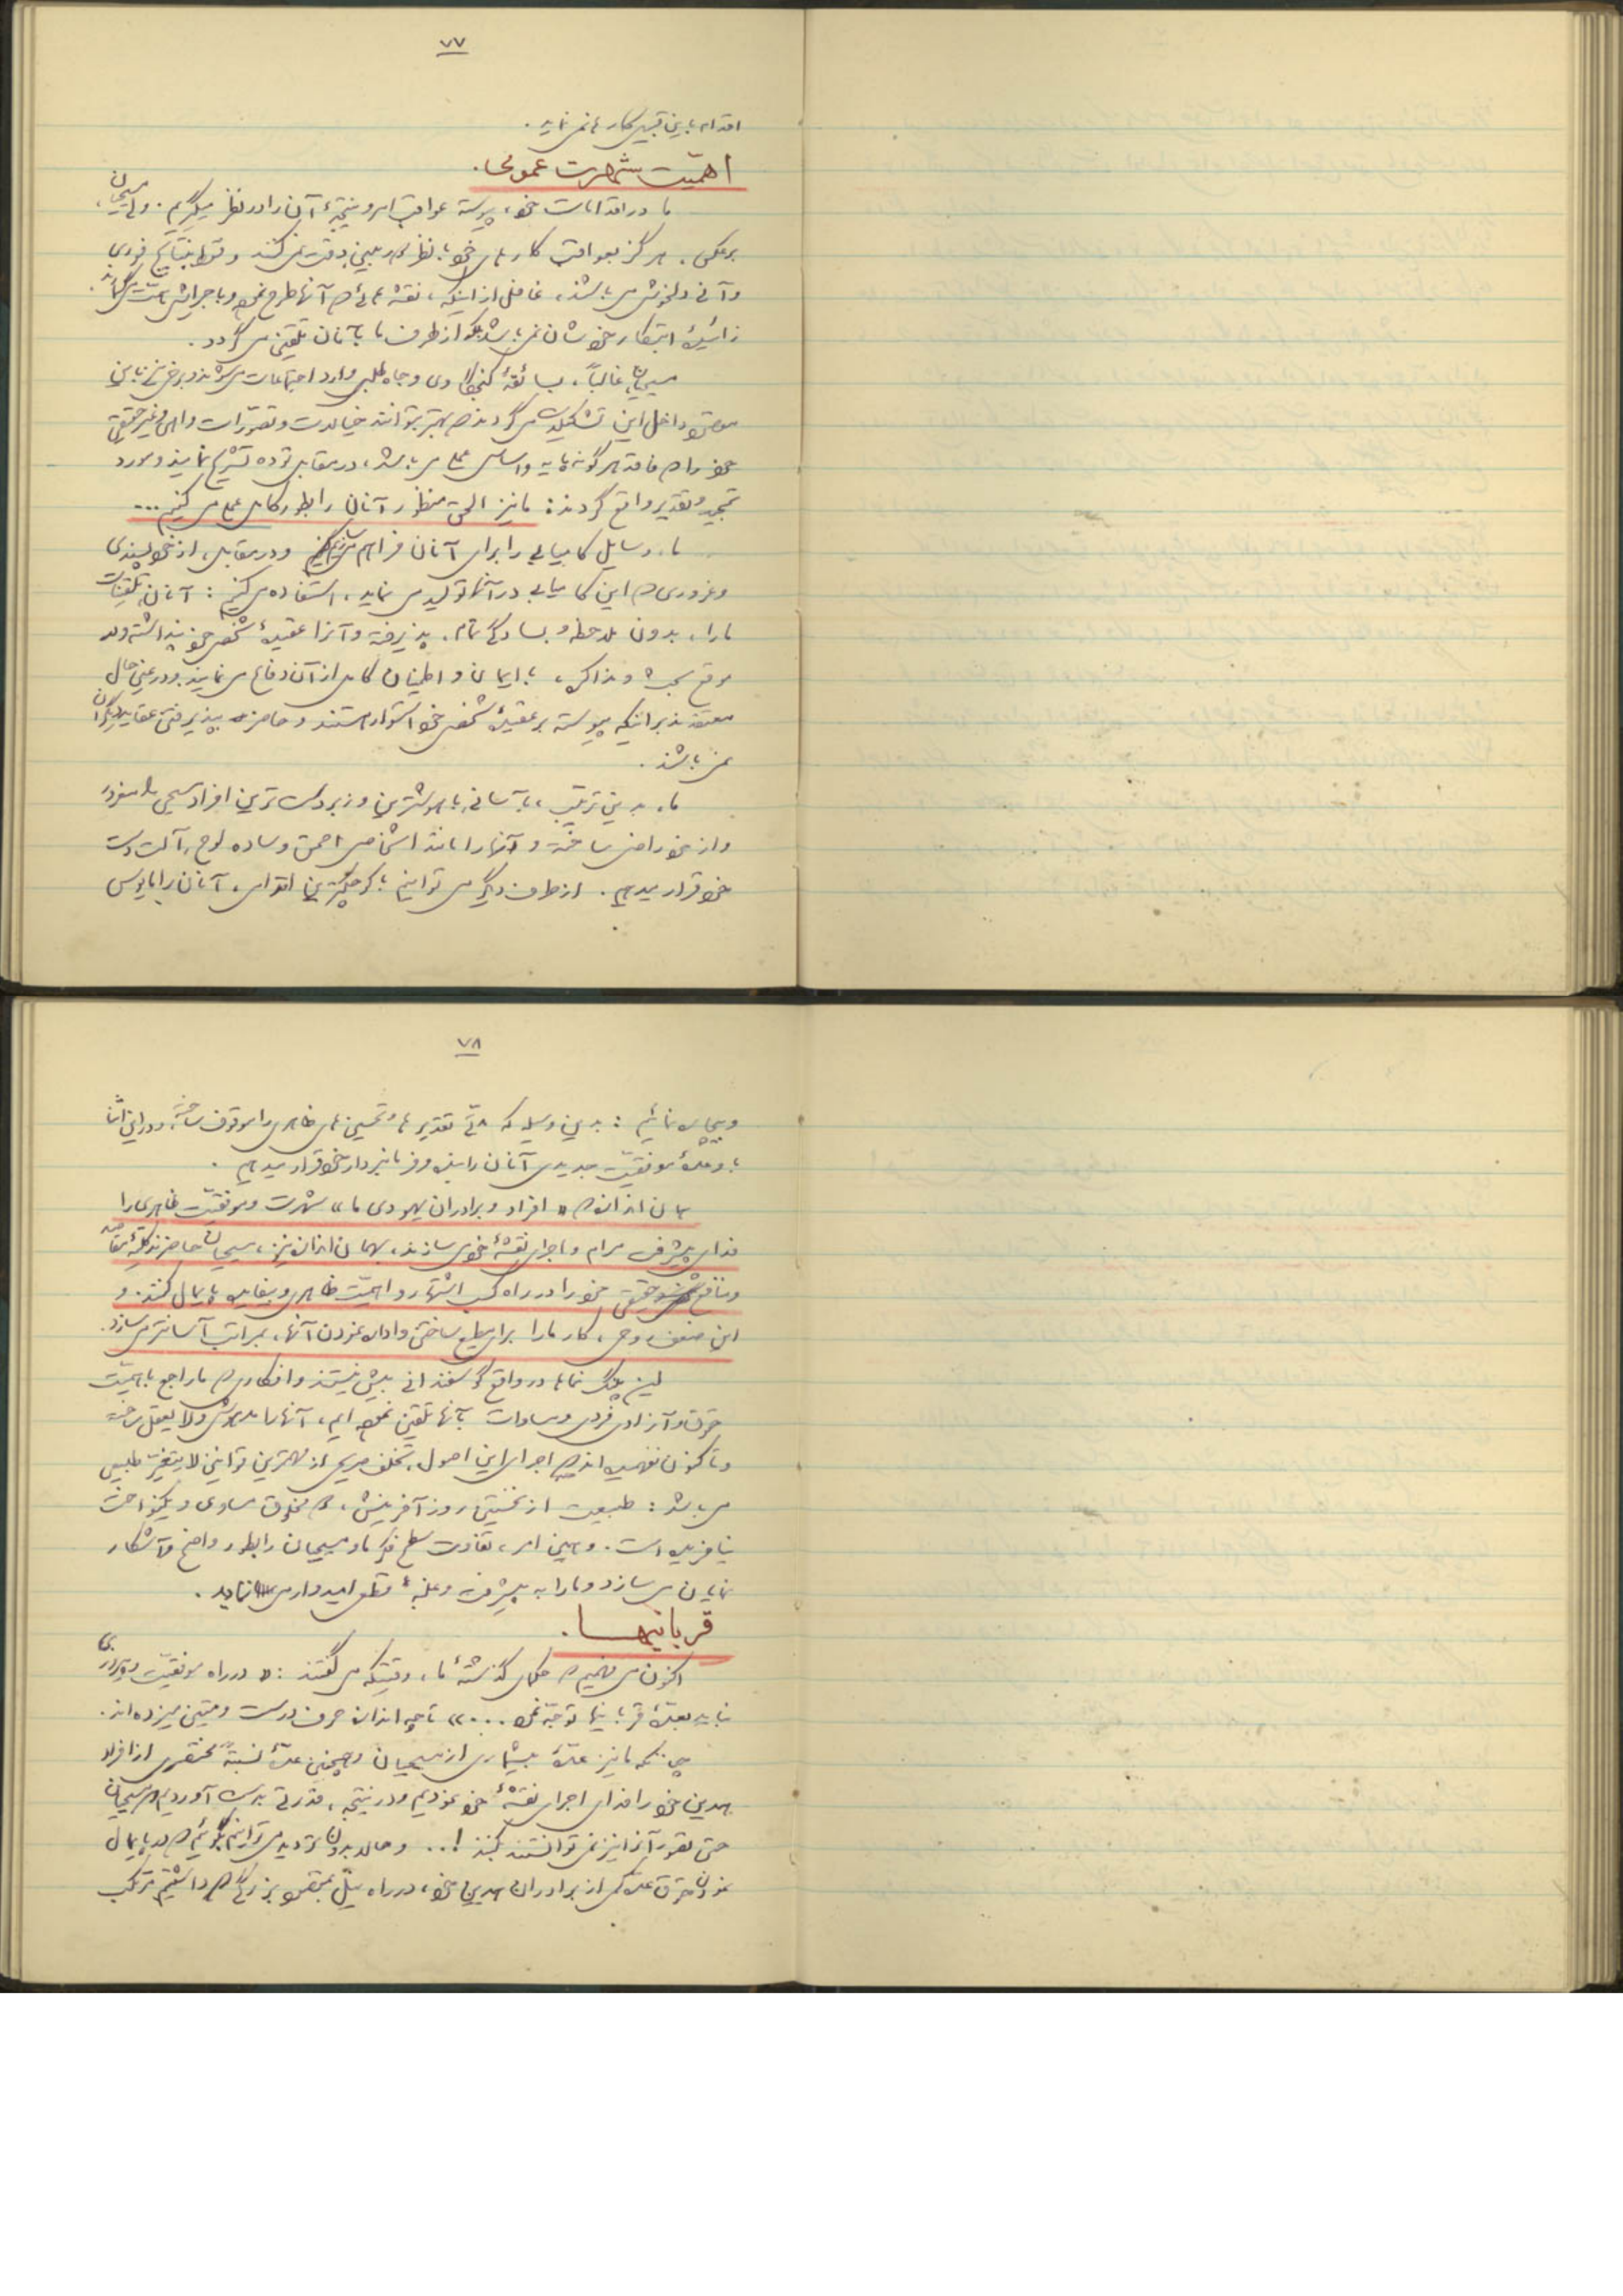 ۷۷
اقدام باین قبیل کارها نمی نماید.
اهمّیت شهرت عمومی.
ما در اقدامات خود، پیوسته عواقب امر و نتیجۀ آن را در نظر میگیریم. ولی مسیحیان،
برعکس، هرگز بعواقب کارهای خود با نظر دوربین دقت نمی کنند و فقط بنتایج فوری
و آنی دلخوش می باشند، غافل از اینکه، نقشه هائی که آنها طرح نموده و باجرایش
زائیدۀ ابتکار خودشان نمی باشد بلکه از طرف ما بآنان تلقین می گردد.
مسیحیان غالباً، بسائقۀ کنجکاوی و جاه طلبی وارد اجتماعات می شوند و برخی نیز باین
داخل این تشکیلات می گردند که بهتر بتوانند خیالات و تصوّرات واهی و غیر حقیقی
خود را که فاقد هرگونه پایه و اساس عملی می باشد، در مقابل توده تشریح نمایند و مورد
تمجید و تقدیر واقع گردند: ما نیز الحق منظور آنان را بطور کامل عملی می کنیم...
ما، وسایل کامیابی را برای آنان فراهم و در مقابل، از خودپسندی
و غروری که این کامیابی در آنها تولید می نماید، استفاده می کنیم: آنان تلقینات
ما را، بدون ملاحظه و بسادگی تمام، پذیرفته و آنرا عقیدۀ شخصی خود پنداشته و در
موقع بحث و مذاکره، با ایمان و اطمینان کامل از آن دفاع می نمایند و در عین حال
معتقدند براینکه پیوسته بر عقیدۀ شخصی خود استوار هستند و حاضر به پذیرفتن عقاید دیگران
نمی باشند.
ما، بدین ترتیب، بآسانی باهوشترین و زبردست ترین افراد مسیحی را مغرور
و از خود راضی ساخته و آنها را مانند اشخاص احمق و ساده لوح، آلت دست
خود قرار میدهیم. از طرف دیگر می توانیم با کوچکترین اقدامی، آنان را مأیوس
۷۸
و بیچاره نمائیم: بدین وسیله که تقدیرها و تحسین های ظاهری را موقوف ساخته، و در این اثنا
با وعدۀ موفقیّت جدیدی آنان را بنده و فرمانبردار خود قرار میدهیم.
همان اندازه که «افراد و برادران یهودی ما» شهرت و موفقیّت ظاهری را
فدای پیشرفت مرام و اجرای نقشۀ خود می سازند، بهمان اندازه نیز، مسیحیان حاضرند کلیّۀ مقاصد
و منافع حقیقی خود را در راه کسب اشتهار و اهمیّت ظاهری و بیفایده پایمال کنند. و
این ضعف روحی، کار ما را برای مطیع ساختن و اداره نمودن آنها، بمراتب آسانتر می سازد.
این پلنگ نماها در واقع گوسفندانی بیش نیستند و افکاری که ما راجع باهمیّت
حقوق و آزادی فردی و مساوات بآنها تلقین نموده ایم، آنها را مدهوش و لایعقل ساخته
و تاکنون نفهمیده اند که اجرای این اصول، تخلف صریحی از مهمترین قوانین لایتغیّر طبیعی
می باشد: طبیعت از نخستین روز آفرینش، دو مخلوق مساوی و یکنواخت
نیافریده است. و همین امر، تفاوت سطح فکر ما و مسیحیان را بطور واضح و آشکار
نمایان می سازد و ما را به پیشرفت و غلبۀ قطعی امیدوار می نماید.
قربانیها.
اکنون می فهمیم که حکمای گذشتۀ ما، وقتیکه می گفتند: «در راه موفقیّت و پیروزی
نباید بعدّۀ قربانیها توجّه نمود...» تا چه اندازه حرف درست و متینی میزده اند.
چونکه ما نیز عدّۀ بیشماری از مسیحیان و همچنین عدّۀ نسبةً مختصری از افراد
همدین خود را فدای اجرای نقشۀ خود نمودیم و در نتیجه، قدرتی بدست آوردیم که مسیحیان
حتی تصور آنرا نیز نمی توانستند بکنند!... و حالا بدون تردید می توانیم بگوئیم که در پایمال
نمودن حقوق عدّه کمی از برادران همدین خود، در راه نیل بمقصود بزرگی که داشتیم مرتکب